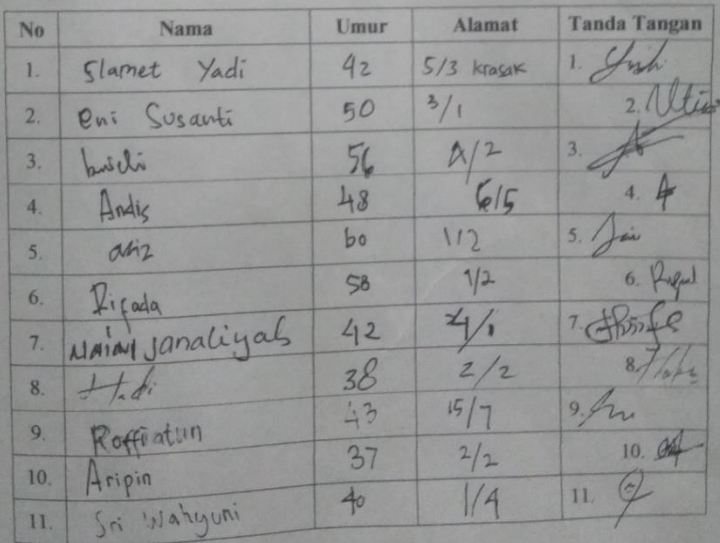 No Nama Umur Alamat Tanda Tangan
1. Slamet Yadi 42 5/3 Krasak 1.
2. eni Susanti 50 3/1 2.
3. 56 4/2 3.
4. Andis 48 6/5 4.
5. aziz 60 1/2 5.
6. Rifada 58 1/2 6.
7. janaliyah 42 4/1 7.
8. Hadi 38 2/2 8.
9. Roffiatun 43 15/7 9.
10. Aripin 37 2/2 10.
11. Sri Wahyuni 40 1/4 11.